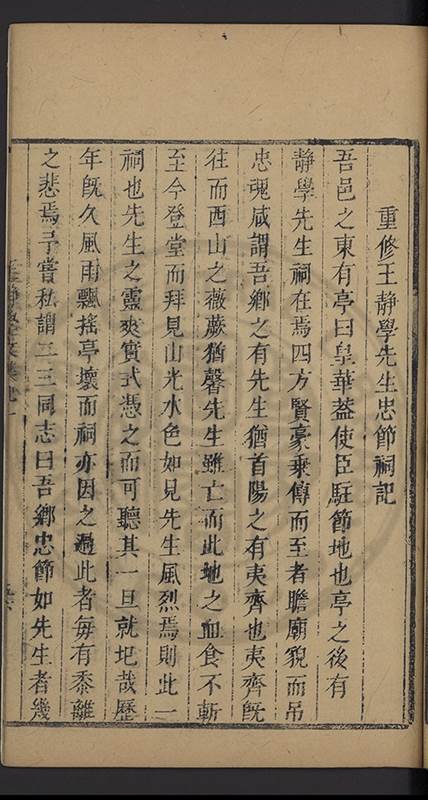 重修王靜學先生忠節祠記
吾邑之東有亭曰皇華葢使臣駐節地也亭之後有
靜學先生祠在焉四方賢豪乘傳而至者瞻廟貌而吊
忠魂咸謂吾鄉之有先生猶首陽之有夷齊也夷齊旣
往而西山之薇蕨猶馨先生雖亡而此地之血食不斬
至今登堂而拜見山光水色如見先生風烈焉則此一
祠也先生之靈爽實式憑之而可聽其一旦就圮哉歷
年旣久風雨飄搖亭壞而祠亦因之過此者每有黍離
之悲焉予嘗私謂二三同志曰吾鄉忠節如先生者幾